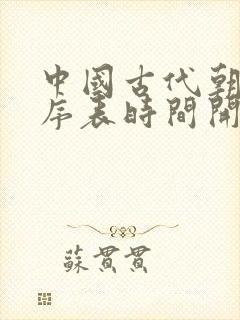 中國古代朝
序表時間開
蘇貫貫